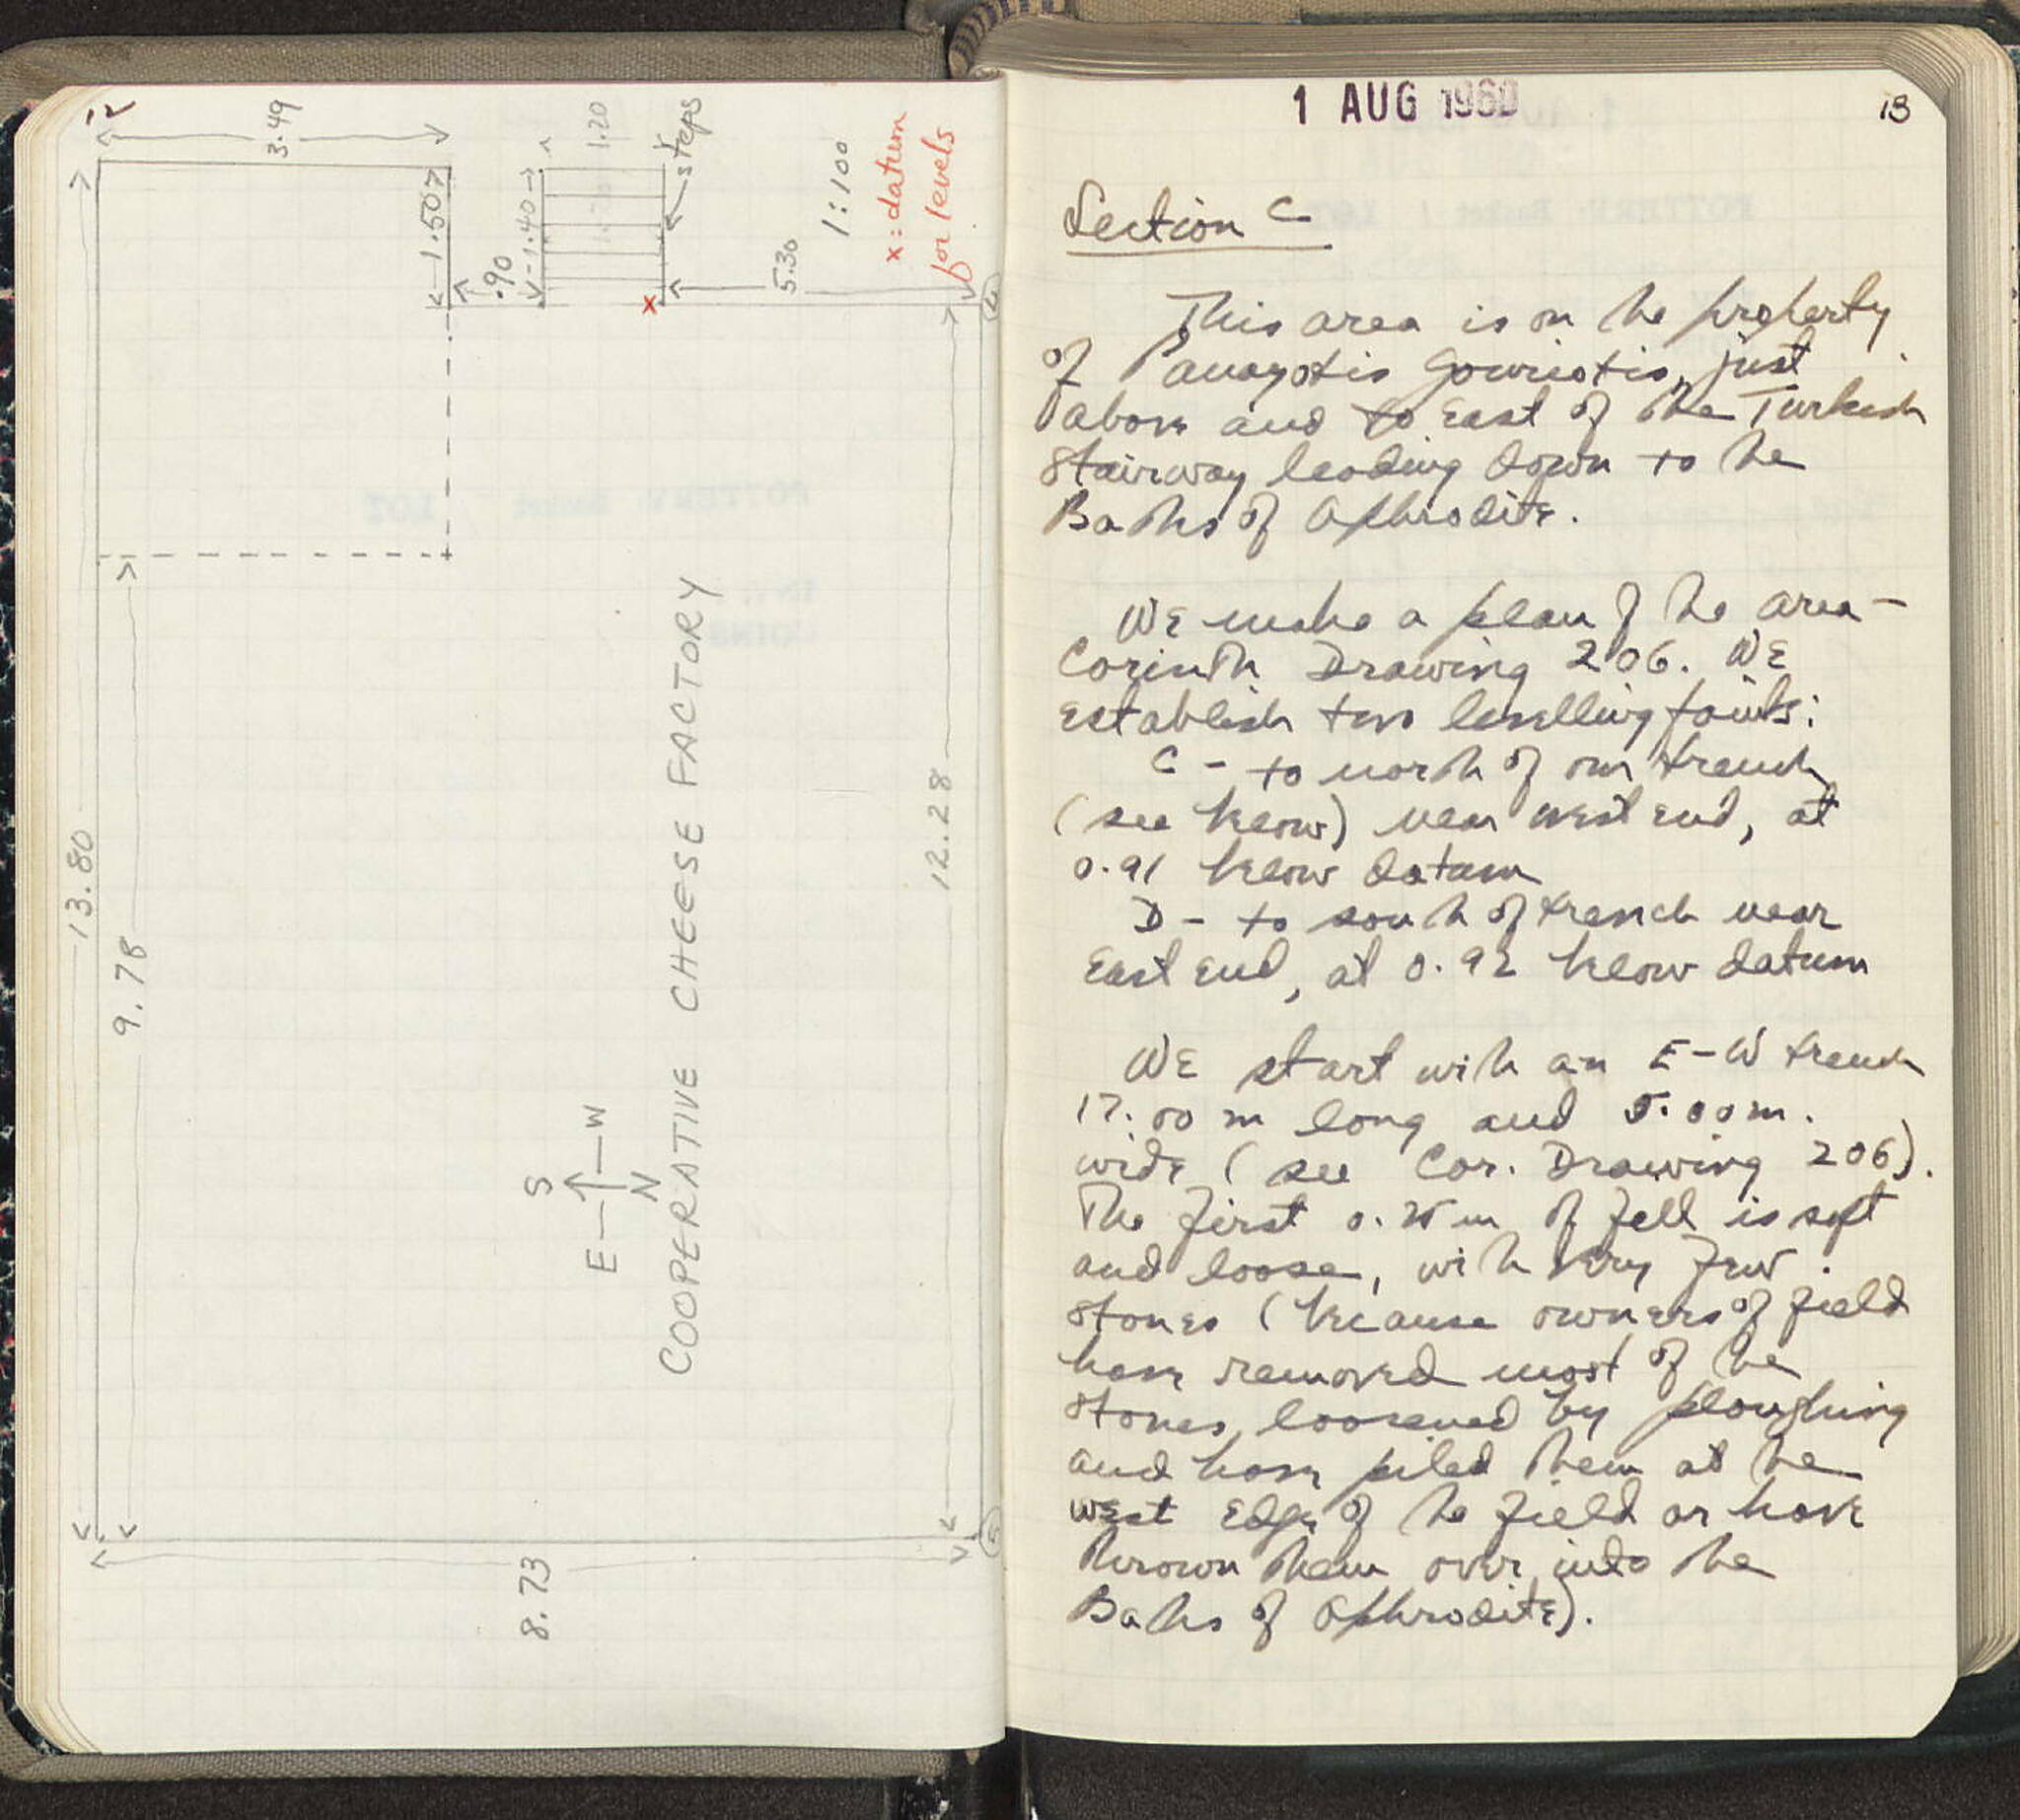 12
3.49
1.50
.90
1.40
1.20
steps
5.30
1:100
x: datum
for levels
x
13.80
9.78
12.28
8.73
COOPERATIVE CHEESE FACTORY
S
E
W
N
1 AUG 1960
13
Section C
This area is on the property
of Panayotis Gouriotis, just
above and to East of the Turkish
Stairway leading down to the
Baths of Aphrodite.
We make a plan of the area –
Corinth Drawing 206. We
establish two levelling points:
C – to north of our trench
(see below) near west end, at
0.91 below datum
D – to south of trench near
East End, at 0.92 below datum
We start with an E-W trench
17.00 m long and 5.00 m.
wide (see Cor. Drawing 206).
The first 0.25 m of fill is soft
and loose, with very few
stones (because owners of field
have removed most of the
stones loosened by ploughing
and have piled them at the
west edge of the field or have
thrown them over into the
Baths of Aphrodite).